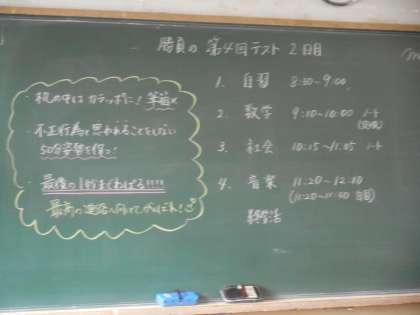 勝負の第4回テスト 2日目
・机の中はカラッポに！筆箱×
・不正行為と思われることをしない
50分姿勢を保つ！
・最後の1秒までねばる!!!!
最高の進路へ向けてがんばれ！
1. 自習 8:50-9:00
2. 数学 9:10-10:00 1-4
3. 社会 10:15-11:05 1-4
4. 音楽 11:20-12:10
(11:20-11:40